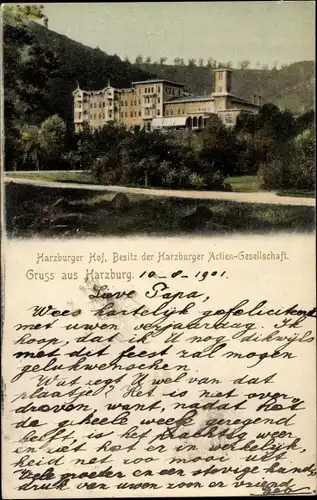 Harzburger Hof, Besitz der Harzburger Actien-Gesellschaft.
Gruss aus Harzburg. 10-8-1901.
Lieve Papa,
Wees hartelijk gefeliciteerd
met uwen verjaardag. Ik
hoop, dat ik U nog dikwijls
met dit feest zal mogen
gelukwenschen.
Wat zegt U wel van dat
plaatje? Het is niet over-
dreven want, nadat het
de geheele week geregend
heeft, is het prachtig weer
en ziet het er in werkelijk-
heid net zoo mooi uit.
Vele moeder en een stevige hand-
druk van uwen zoon er vriend